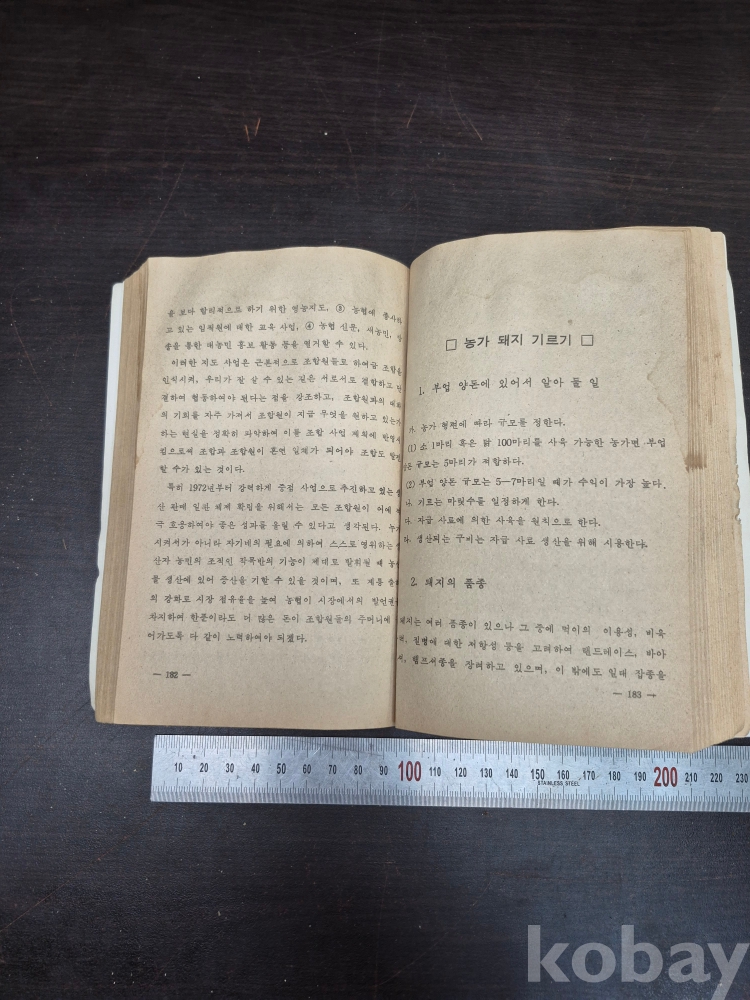 을 보다 합리적으로 하기 위한 영농지도, ③ 농협에 종사하
고 있는 임직원에 대한 교육 사업, ④ 농협 신문, 새농민, 방
송을 통한 대농민 홍보 활동 등을 열거할 수 있다.
이러한 지도 사업은 근본적으로 조합원들로 하여금 조합을
인식시켜, 우리가 잘 살 수 있는 길은 서로서로 결합하고 단
결하여 협동하여야 된다는 점을 강조하고, 조합원과의 대화
의 기회를 자주 가져서 조합원이 지금 무엇을 원하고 있는가
하는 현실을 정확히 파악하여 이를 조합 사업 계획에 반영시
킴으로써 조합과 조합원이 혼연 일체가 되어야 조합도 발전
할 수가 있는 것이다.
특히 1972년부터 강력하게 중점 사업으로 추진하고 있는 생
산 판매 일관 체계 확립을 위해서는 모든 조합원이 이에 적
극 호응하여야 좋은 성과를 올릴 수 있다고 생각된다. 누가
시켜서가 아니라 자기네의 필요에 의하여 스스로 영위하는
산자 농민의 조직인 작목반의 기능이 제대로 발휘될 때 농
물 생산에 있어 증산을 기할 수 있을 것이며, 또 계통 출
의 강화로 시장 점유율을 높여 농협이 시장에서의 발언권을
차지하여 한푼이라도 더 많은 돈이 조합원들의 주머니에
어가도록 다 같이 노력하여야 되겠다.
— 182 —
□ 농가 돼지 기르기 □
1. 부업 양돈에 있어서 알아 둘 일
가. 농가 형편에 따라 규모를 정한다.
(1) 소 1마리 혹은 닭 100마리를 사육 가능한 농가면 부업
양돈 규모는 5마리가 적합하다.
(2) 부업 양돈 규모는 5—7마리일 때가 수익이 가장 높다.
나. 기르는 마릿수를 일정하게 한다.
다. 자급 사료에 의한 사육을 원칙으로 한다.
라. 생산되는 구비는 자급 사료 생산을 위해 시용한다.
2. 돼지의 품종
돼지는 여러 품종이 있으나 그 중에 먹이의 이용성, 비육
성, 질병에 대한 저항성 등을 고려하여 랜드레이스, 바아
셔, 햄프셔종을 장려하고 있으며, 이 밖에도 일대 잡종을
— 183 —
10 20 30 40 50 60 70 80 90 100 110 120 130 140 150 160 170 180 190 200 210 220 230
STAINLESS STEEL
kobay